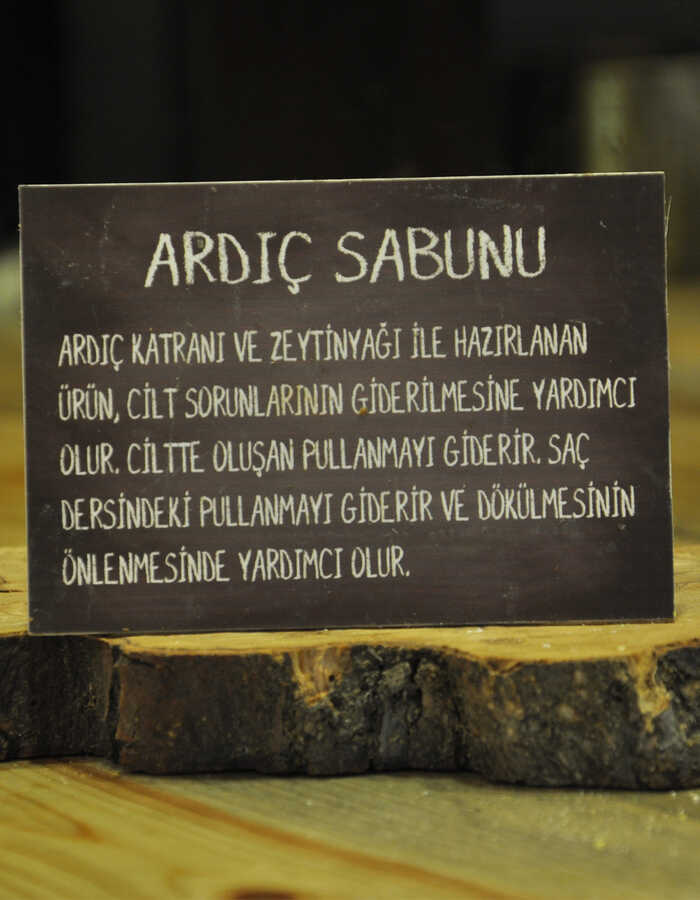 ARDIÇ SABUNU
ARDIÇ KATRANI VE ZEYTİNYAĞI İLE HAZIRLANAN
ÜRÜN, CİLT SORUNLARININ GİDERİLMESİNE YARDIMCI
OLUR. CİLTTE OLUŞAN PULLANMAYI GİDERİR. SAÇ
DERSİNDEKİ PULLANMAYI GİDERİR VE DÖKÜLMESİNİN
ÖNLENMESİNDE YARDIMCI OLUR.